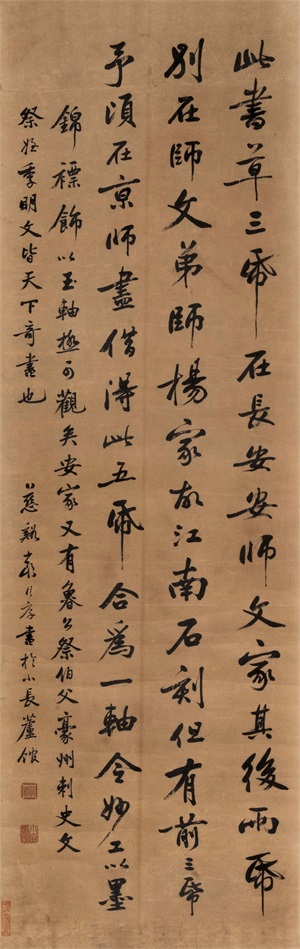 此書草三帋在長安安師文家其後兩帋
別在師文弟師楊家故江南石刻但有前三帋
予頃在京師盡借得此五帋合爲一軸令妙工以墨
錦褾飾以玉軸極可觀矣安家又有魯公祭伯父豪州刺史文
祭姪季明文皆天下奇書也
慈谿嚴信厚書於小長蘆館